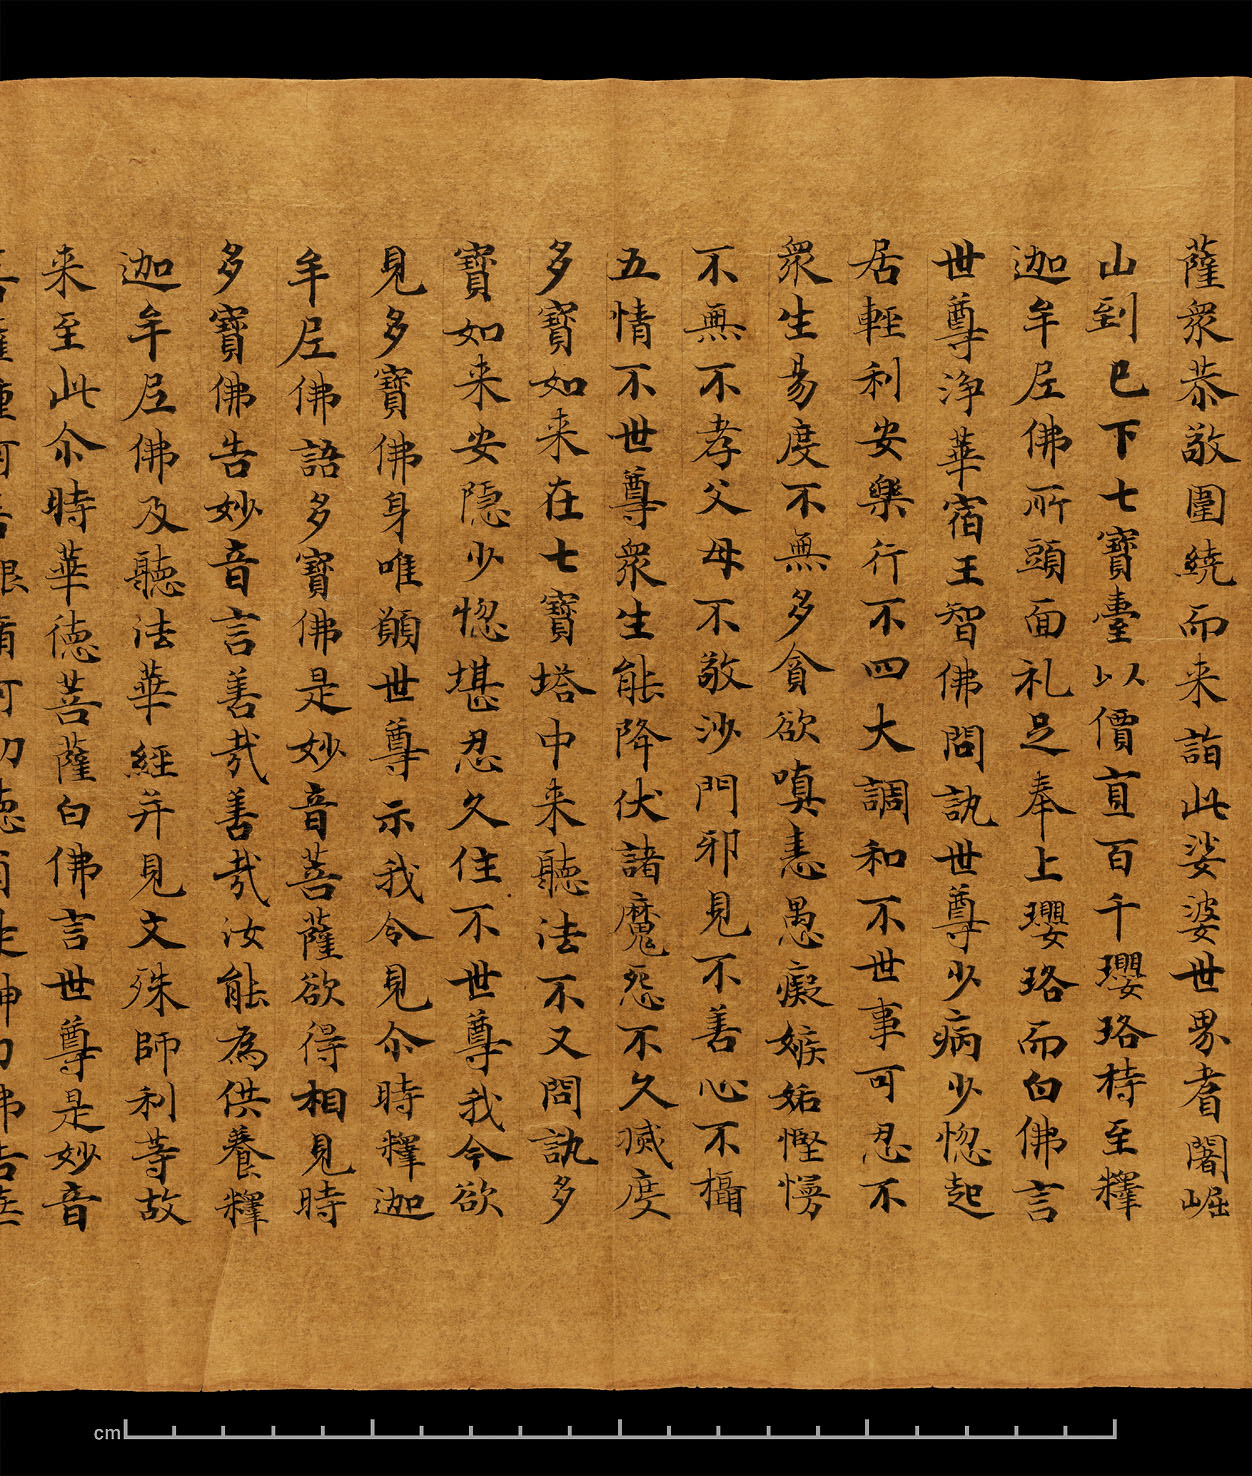 薩眾恭敬圍繞而来詣此娑婆世界耆闍崛
山到已下七寶臺以價直百千瓔珞持至釋
迦牟尼佛所頭面礼足奉上瓔珞而白佛言
世尊淨華宿王智佛問訊世尊少病少惱起
居輕利安樂行不四大調和不世事可忍不
眾生易度不無多貪欲嗔恚愚癡嫉妬慳慢
不無不孝父母不敬沙門邪見不善心不攝
五情不世尊眾生能降伏諸魔怨不久滅度
多寶如来在七寶塔中来聽法不又問訊多
寶如来安隱少惱堪忍久住不世尊我今欲
見多寶佛身唯願世尊示我令見尒時釋迦
牟尼佛語多寶佛是妙音菩薩欲得相見時
多寶佛告妙音言善哉善哉汝能為供養釋
迦牟尼佛及聽法華經并見文殊師利等故
来至此尒時華德菩薩白佛言世尊是妙音
cm